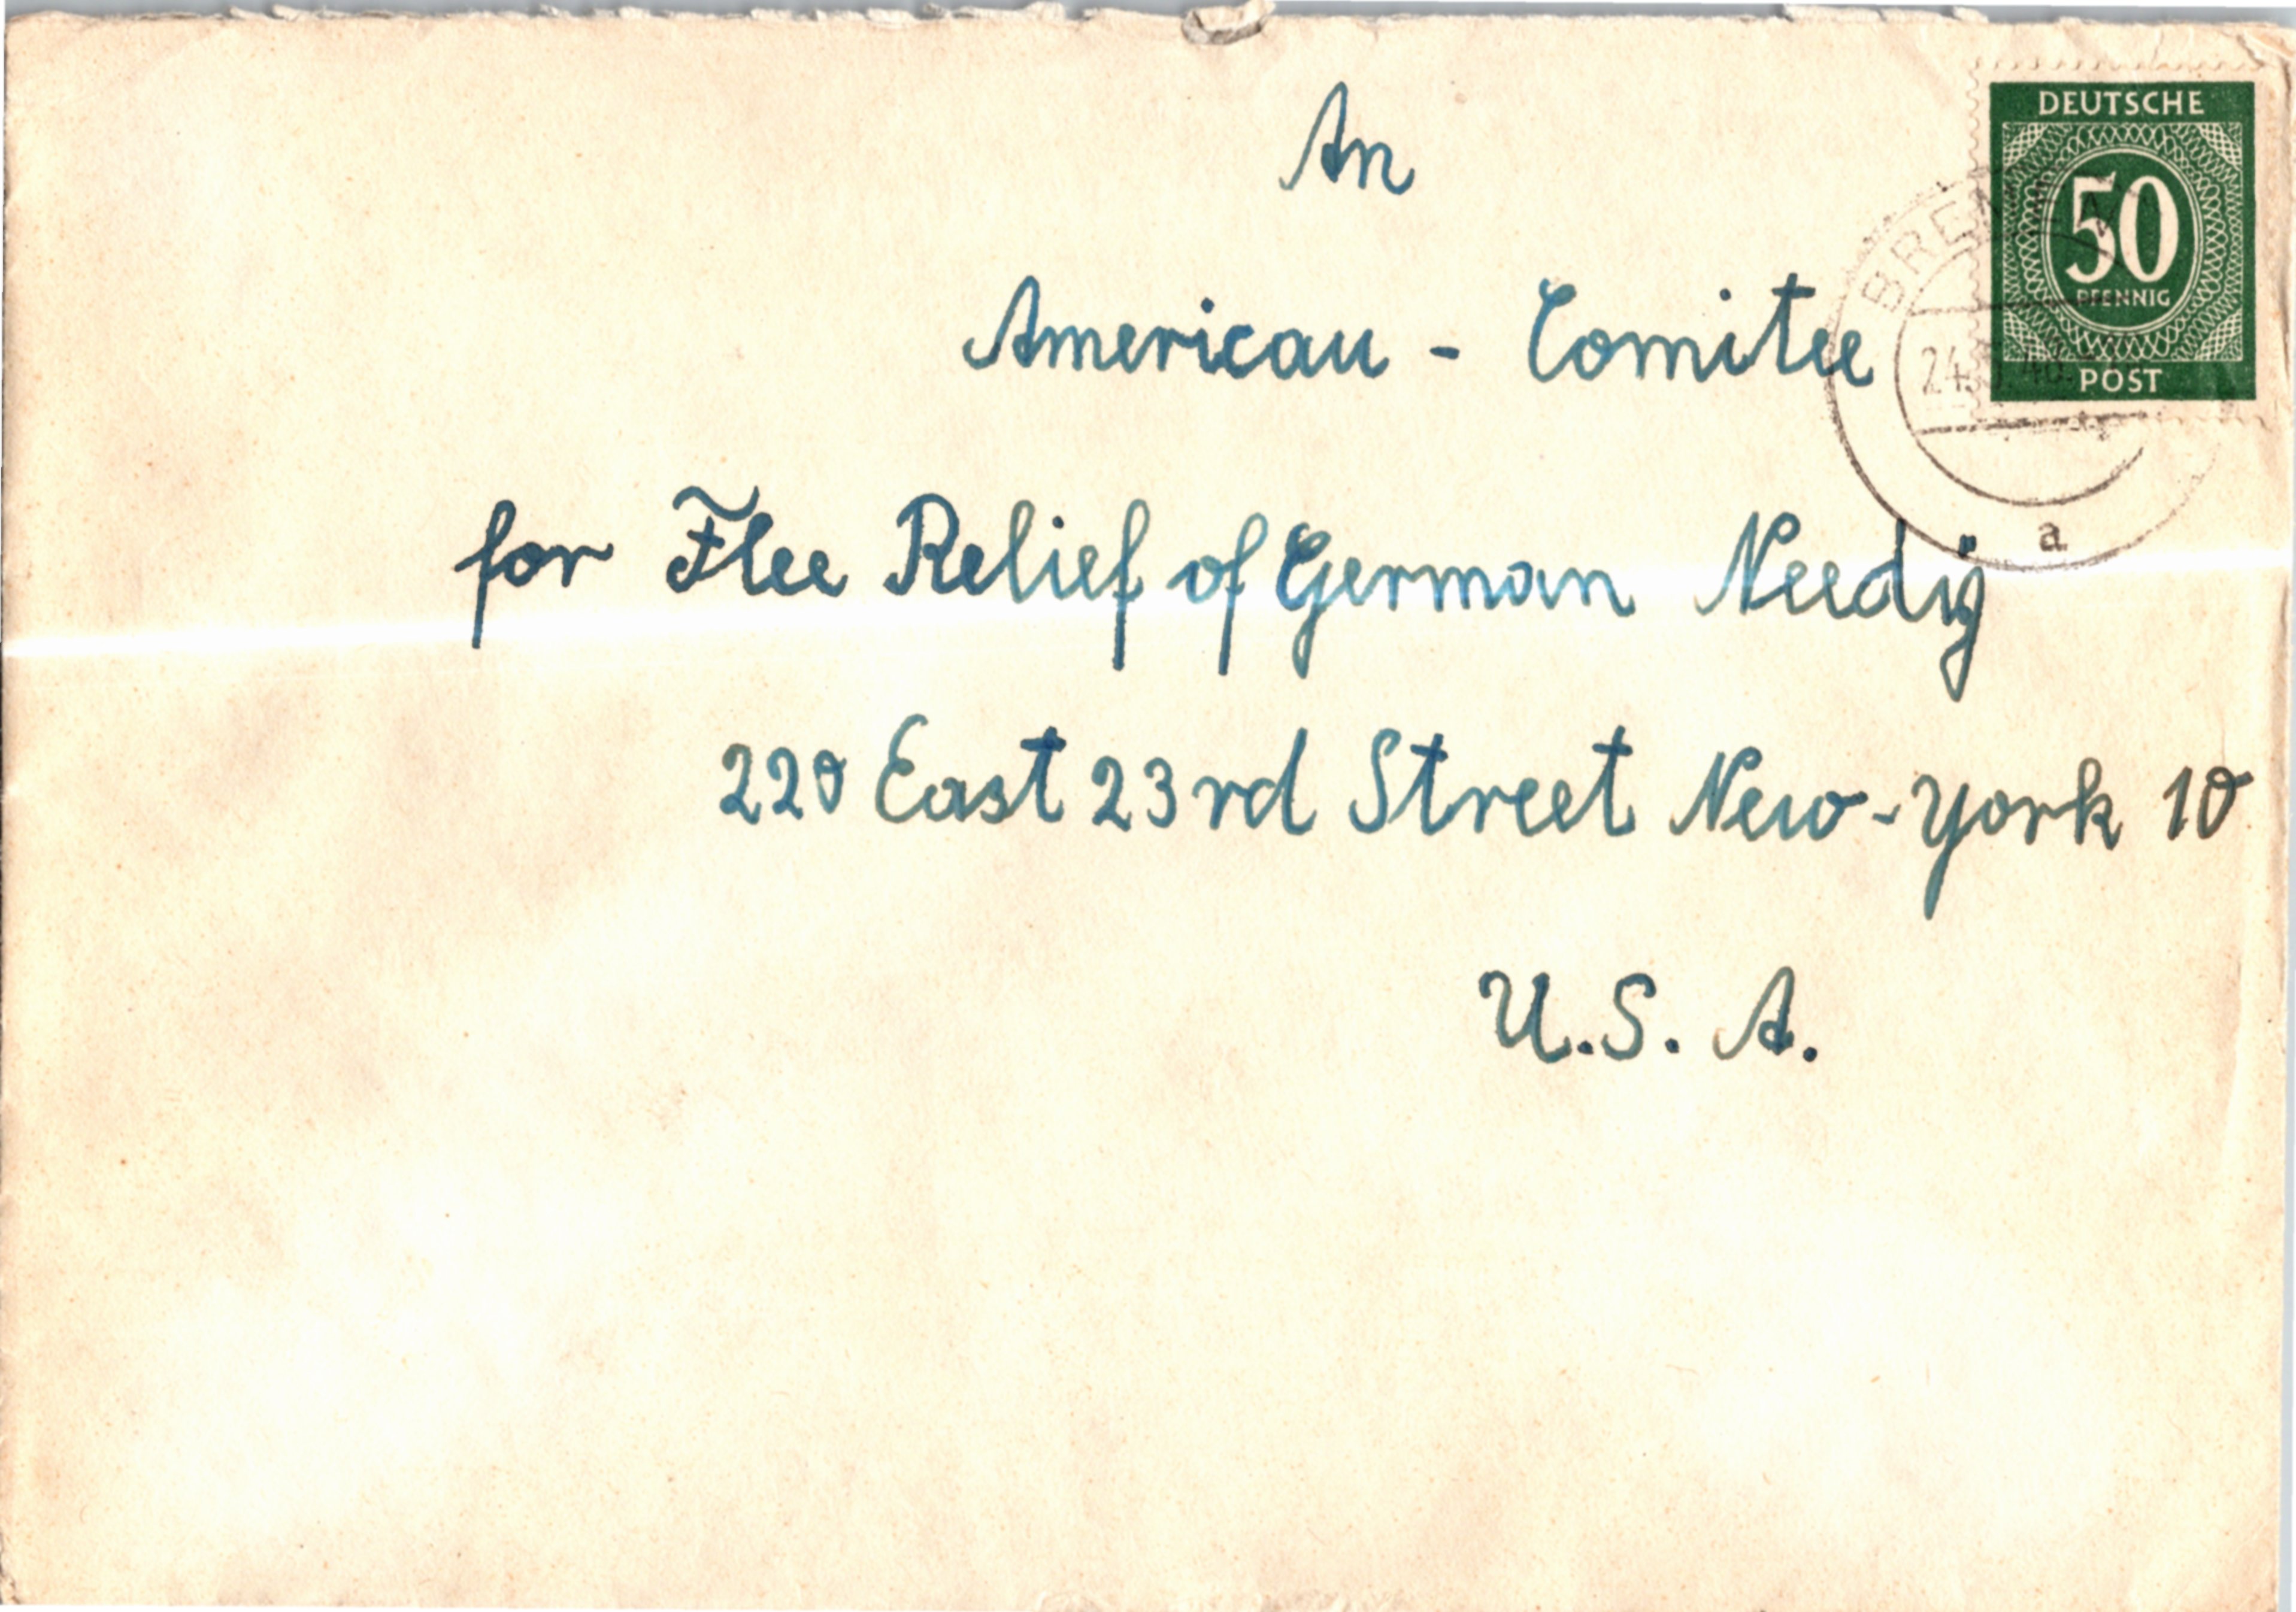 An
American - Comitee
for Flee Relief of German Needy
220 East 23rd Street New-York 10
U.S.A.
DEUTSCHE
50
PFENNIG
POST
a